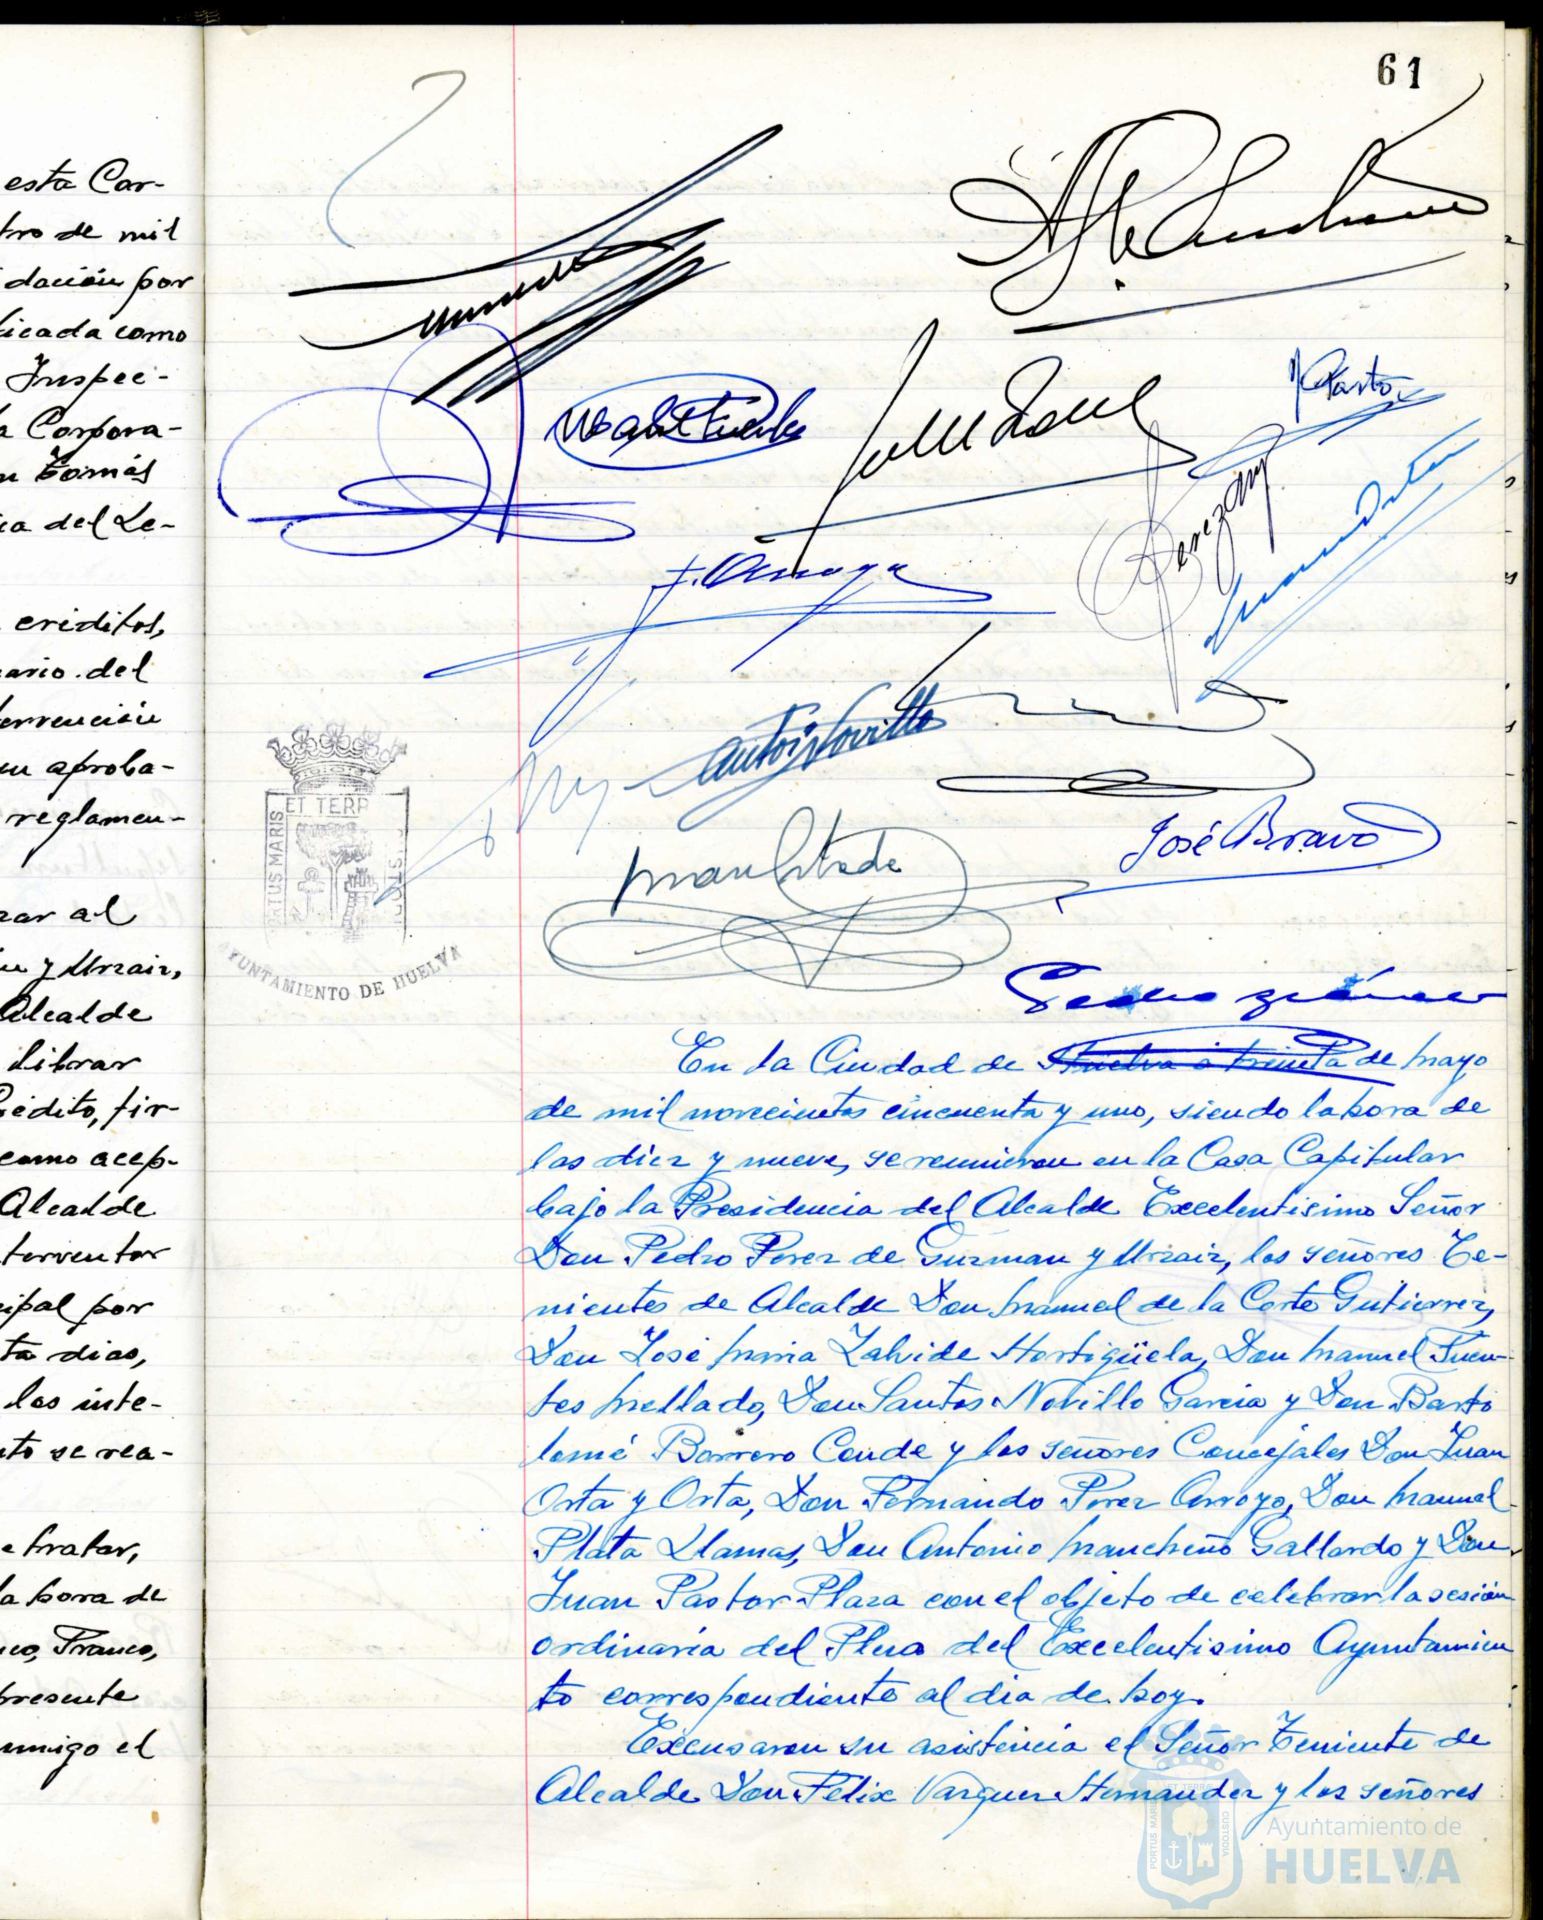 esta Cor-
tro de mil
dación por
licada como
Inspec-
a Corpora-
n Tomás
ica del Le-
créditos,
ario del
tervención
en aproba-
reglamen-
zar al
y Urzaiz,
Alcalde
librar
Crédito, fir-
como acep-
Alcalde
terventor
cipal por
ta dias,
los inte-
nto se rea-
e tratar,
la hora de
Franco,
presente
nmigo el
61
J. Pastor
José Bravo
ET TERR
PORTUS MARIS
CUSTODIA
AYUNTAMIENTO DE HUELVA
En la Ciudad de Huelva a treinta de Mayo
de mil novecientos cincuenta y uno, siendo la hora de
las diez y nueve, se reunieron en la Casa Capitular
bajo la Presidencia del Alcalde Excelentisimo Señor
Don Pedro Perez de Guzman y Urzaiz, los señores Te-
nientes de Alcalde Don Manuel de la Corte Gutierrez,
Don José Maria Zalvide Hortigüela, Don Manuel Fuen-
tes Mellado, Don Santos Novillo Garcia y Don Barto
lomé Borrero Conde y los señores Concejales Don Juan
Orta y Orta, Don Fernando Perez Arroyo, Don Manuel
Plata Llamas, Don Antonio Mancheño Gallardo y Don
Juan Pastor Plaza con el objeto de celebrar la sesión
ordinaria del Pleno del Excelentisimo Ayuntamien
to correspondiente al dia de hoy.
Excusaron su asistencia el Señor Teniente de
Alcalde Don Felix Vazquez Hernandez y los señores
PORTUS MARIS ET TERRE CUSTODIA
Ayuntamiento de
HUELVA